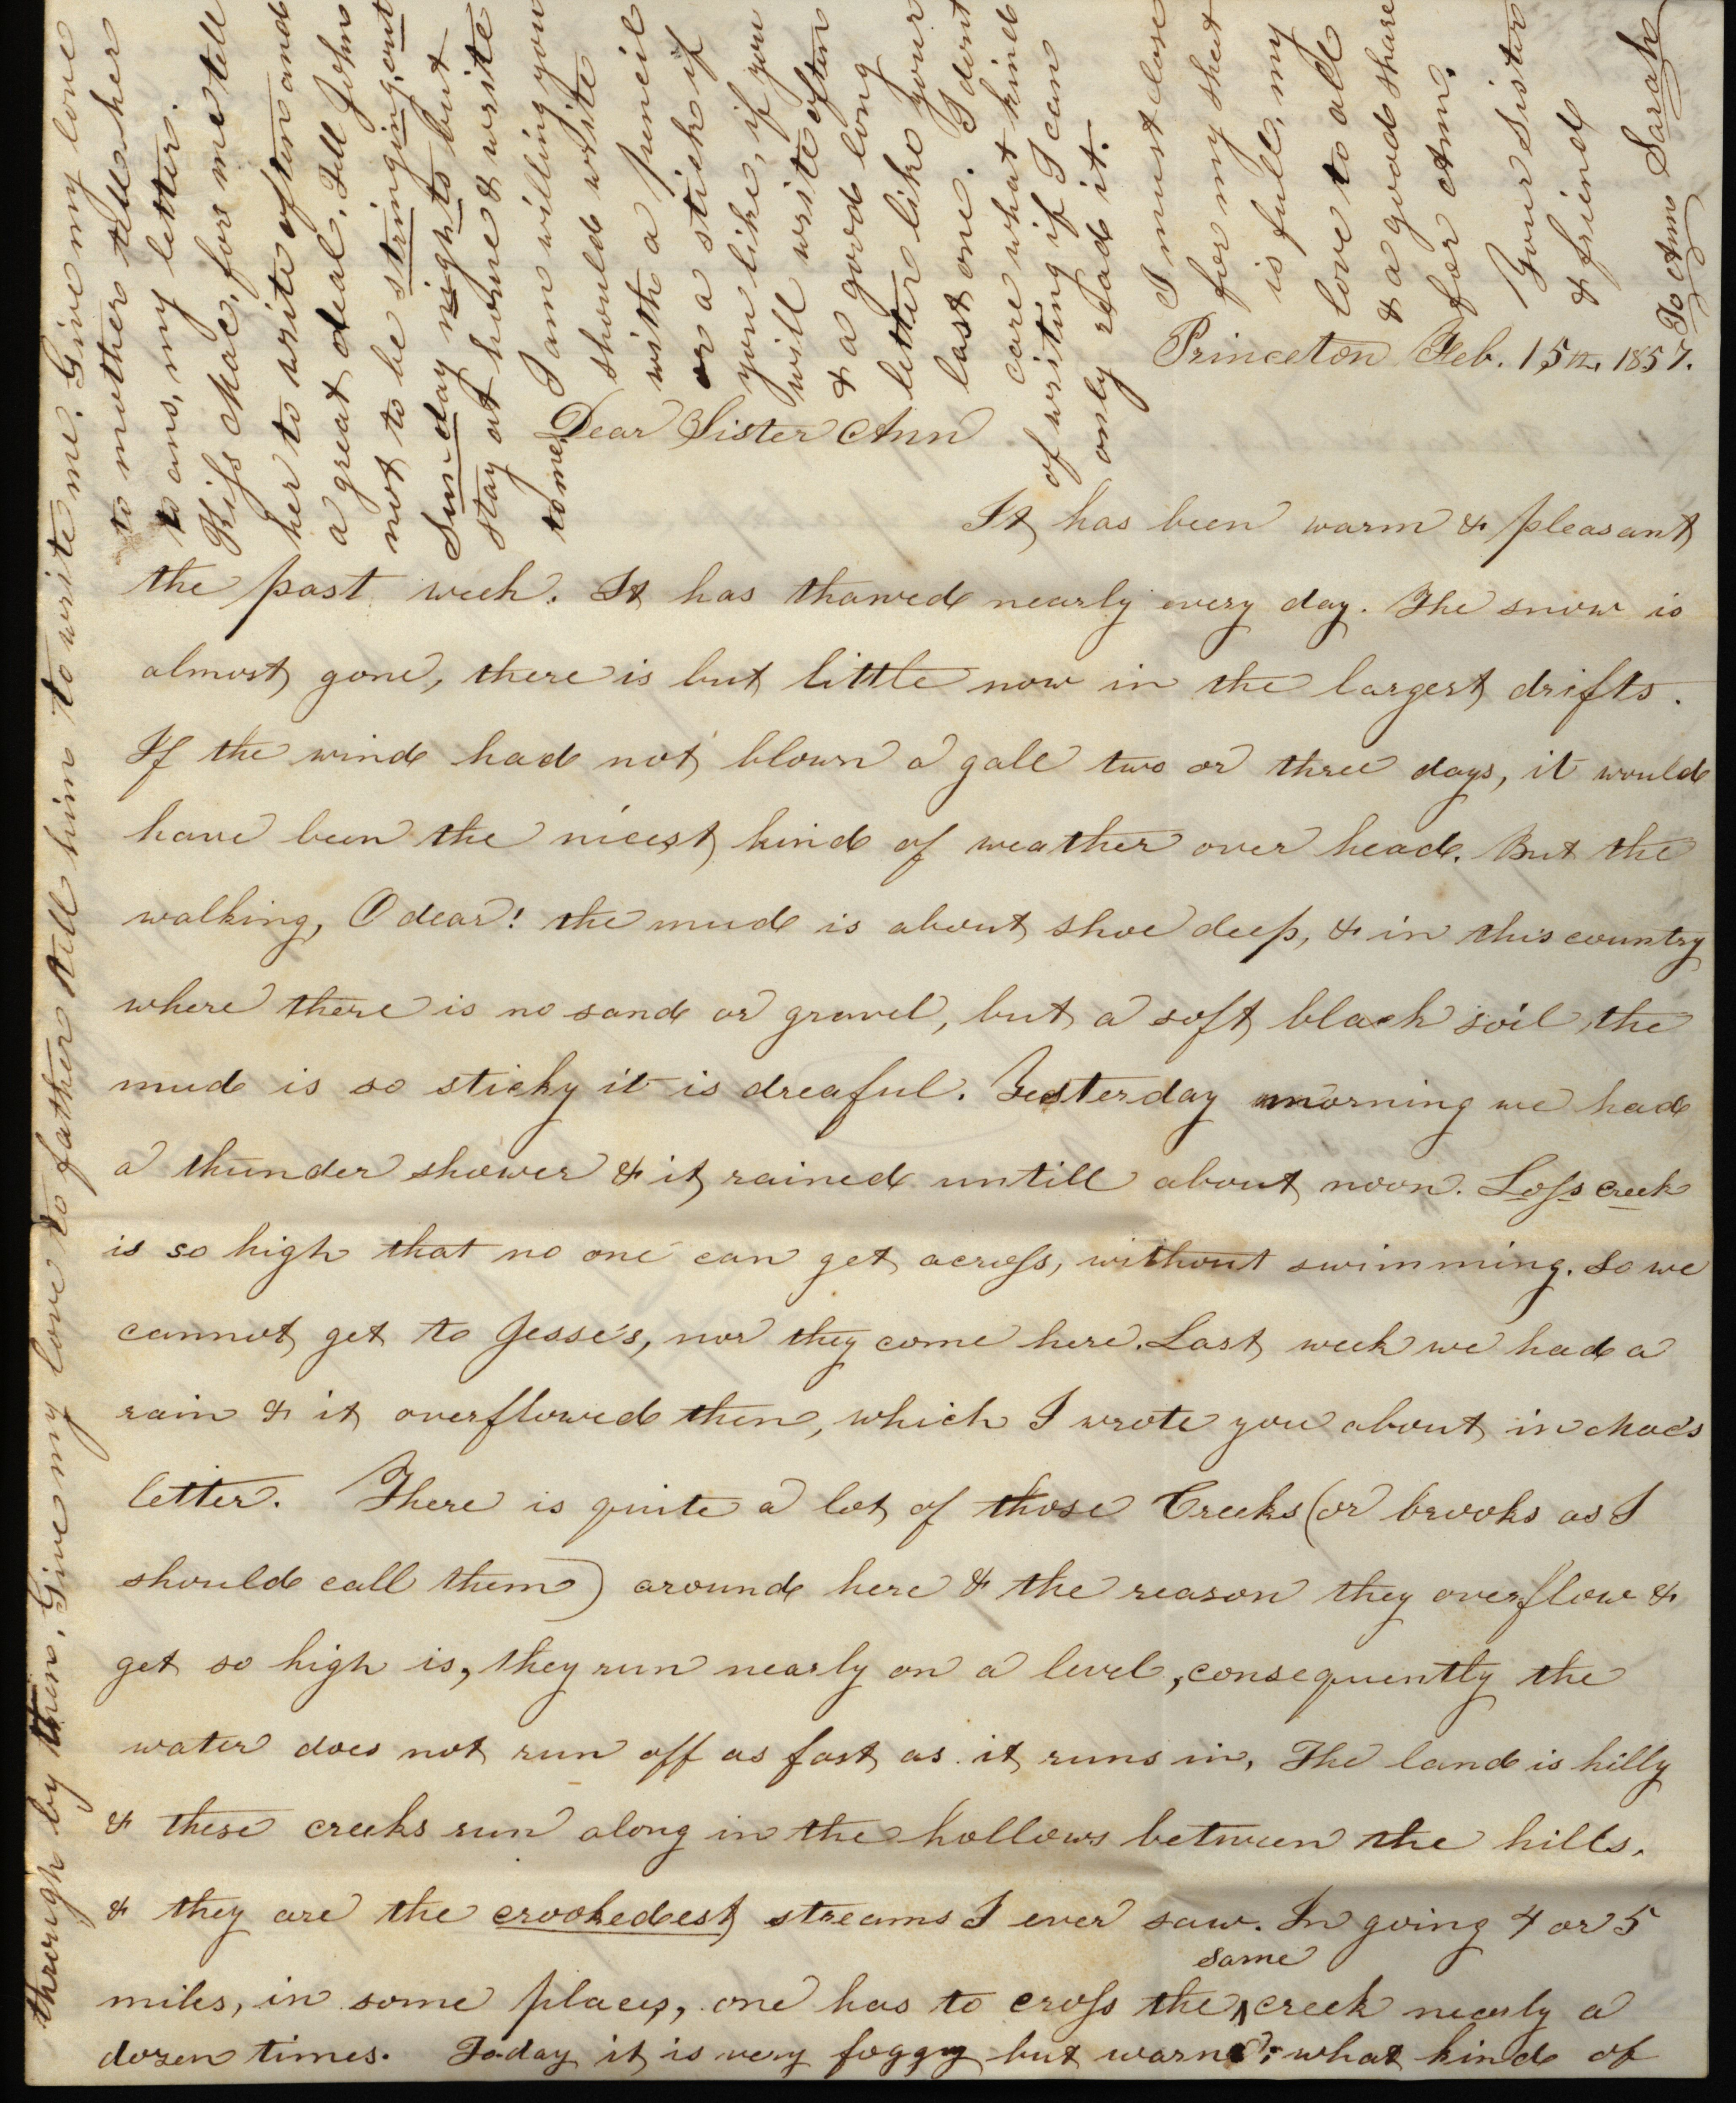 Princeton Feb. 15th, 1857.
Dear Sister Ann
It has been warm & pleasant
the past week. It has thawed nearly every day. The snow is
almost gone, there is but little now in the largest drifts.
If the wind had not blown a gale two or three days, it would
have been the nicest kind of weather over head. But the
walking, O dear! the mud is about shoe deep, & in this country
where there is no sand or gravel, but a soft black soil the
mud is so sticky it is dreaful. Yesterday morning we had
a thunder shower & it rained untill about noon. Loss creek
is so high that no one can get across, without swimming. So we
cannot get to Jesse's, nor they come here. Last week we had a
rain & it overflowed then, which I wrote you about in Mac's
letter. There is quite a lot of those Creeks (or brooks as I
should call them) around here & the reason they overflow &
get so high is, they run nearly on a level, consequently the
water does not run off as fast as it runs in, The land is hilly
& these creeks run along in the hollows between the hills.
& they are the crookedest streams I ever saw. In going 4 or 5
miles, in some places, one has to cross the same creek nearly a
dozen times. Today it is very foggy but warm; what kind of
through by then. Give my love to father & tell him to write me. Give my love
to mother tell her
to ans, my letter.
Kiss Mac, for me tell
her to write often and
a great deal. Tell John
not to be stringing out
Sunday nights but
stay at home & write
to me.
I am willing you
should write
with a pencil
or a stick if
you like, if you
will write often
& a good long
letter like your
last one. I dont
care what kind
of writing if I can
only read it.
I must close
for my sheet
is full, my
love to all
& a good share
for Ann.
Your Sister
& friend
Sarah
To Ann